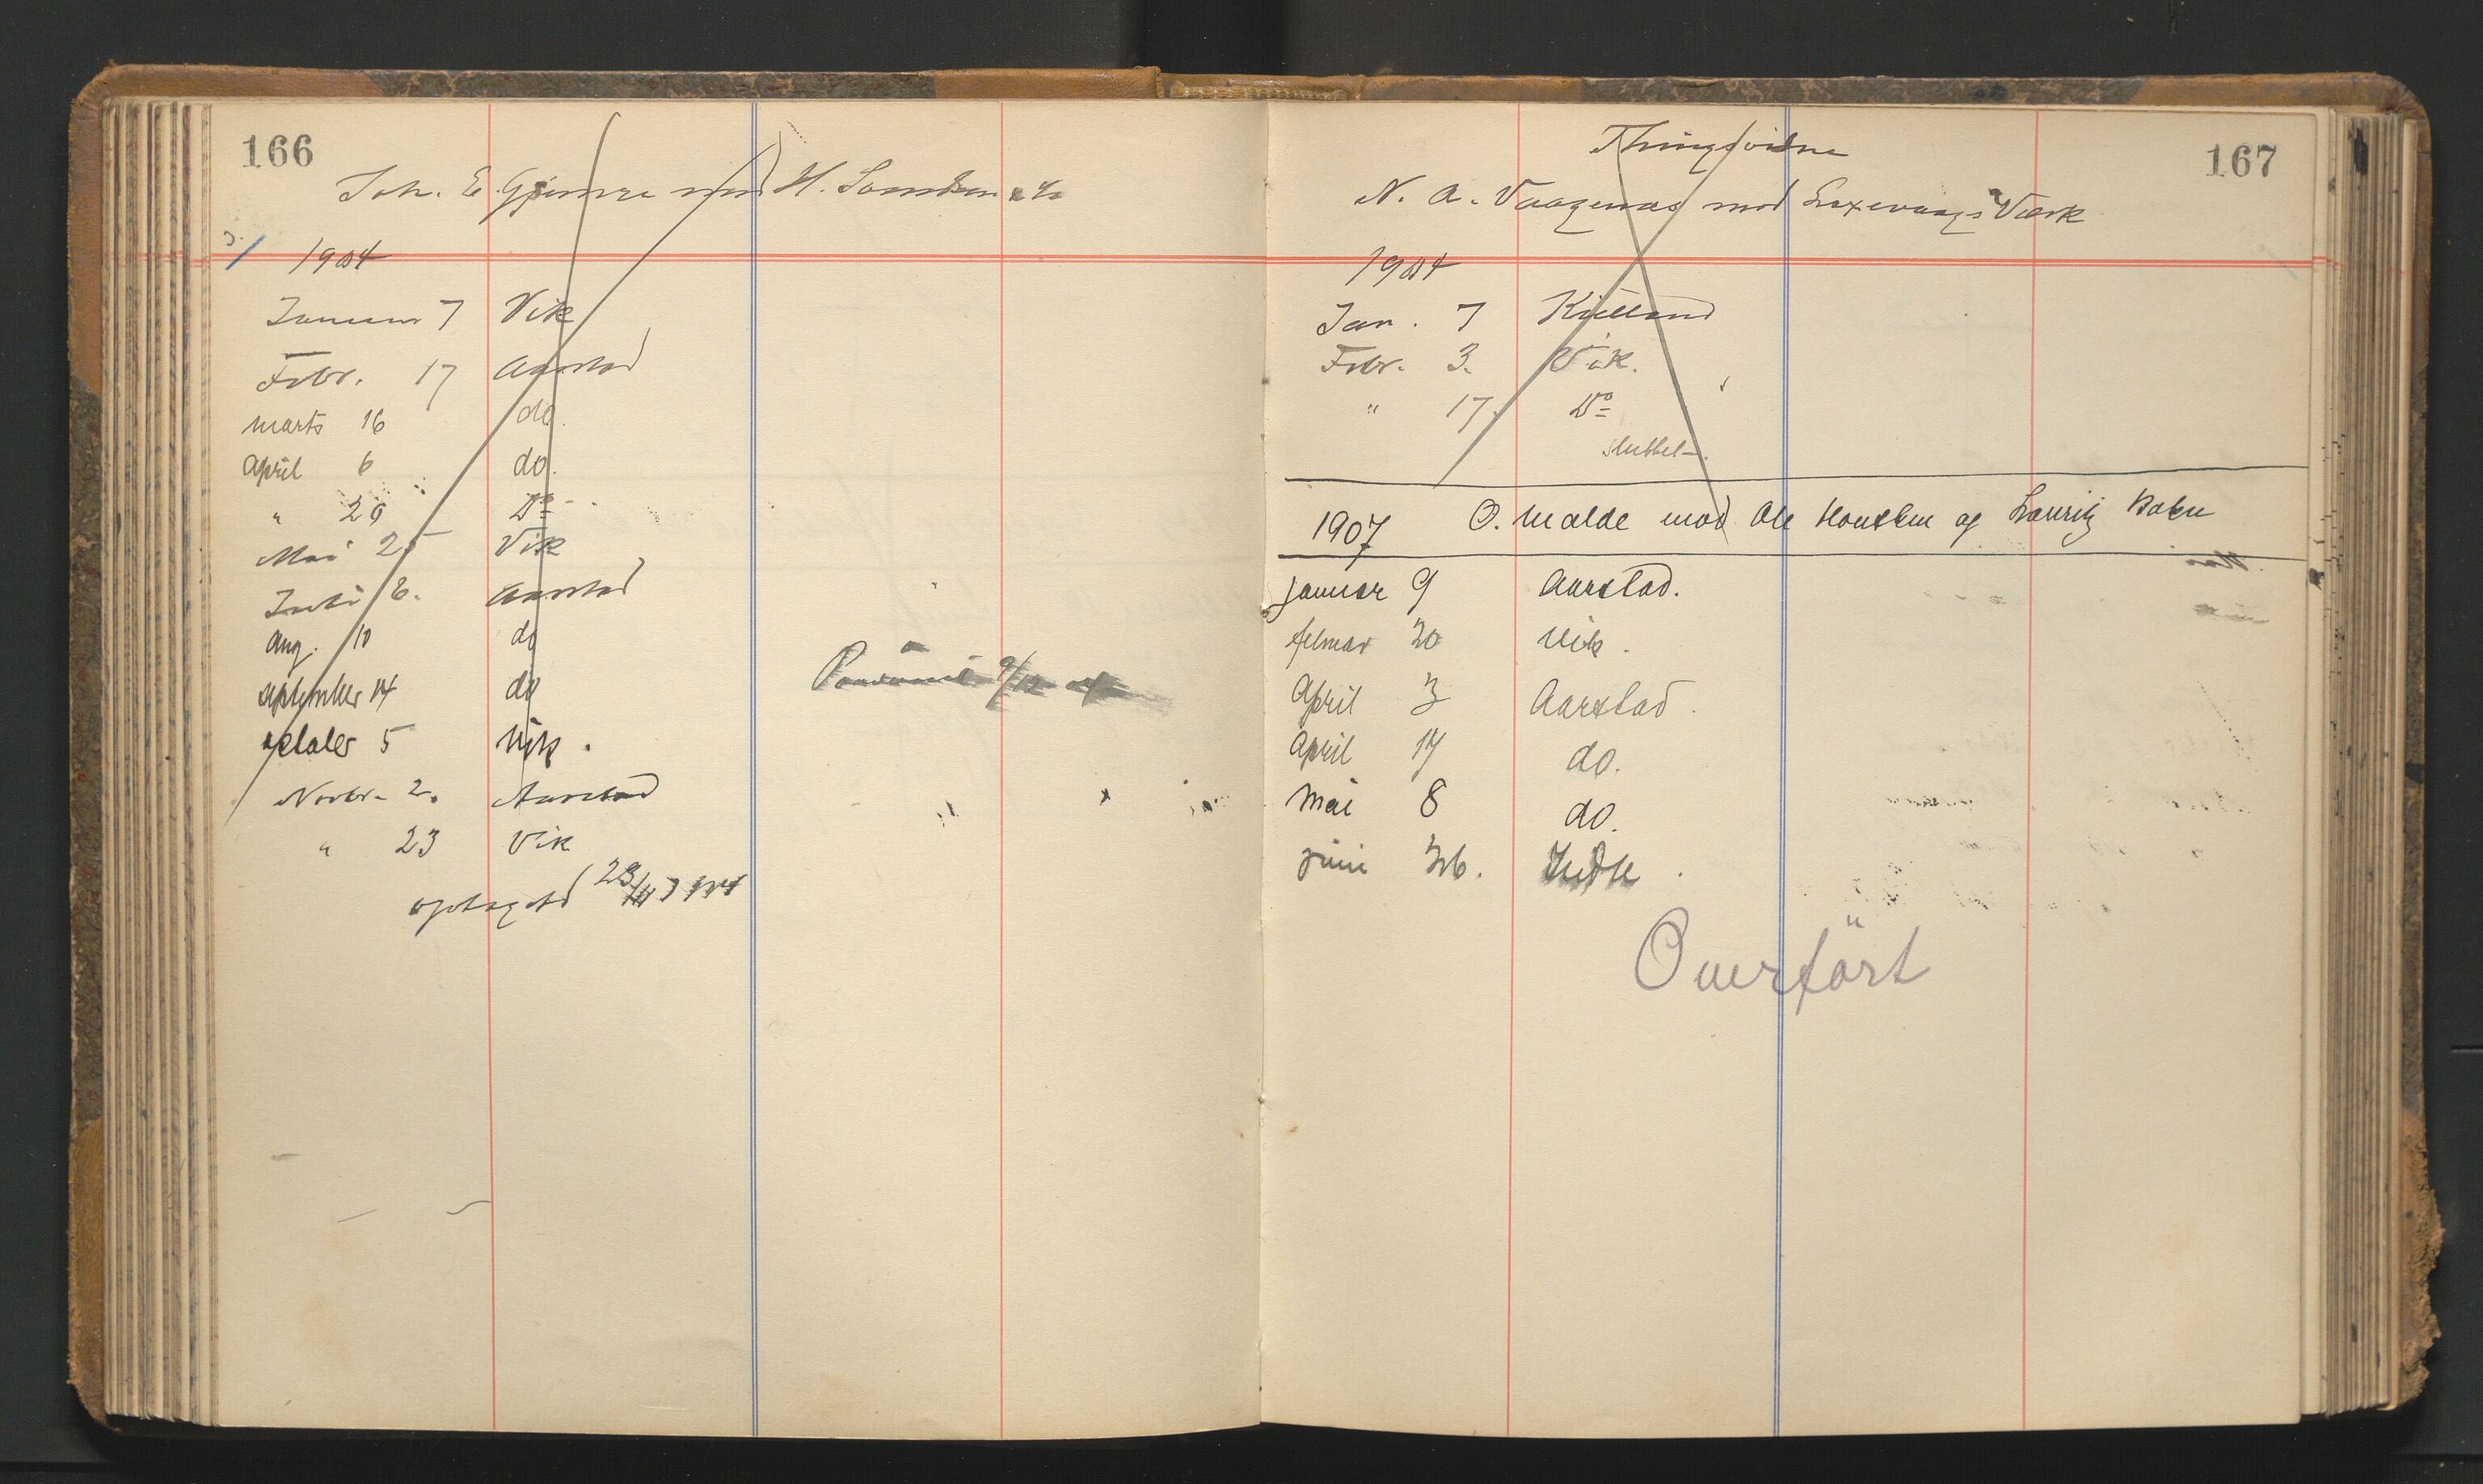 166
Joh. E. Gjemre mod H. Svendsen
1904
Januar 7 Vik
Febr. 17 Aarstad
marts 16 do.
April 6 do.
" 20 Do
Mai 25 Vik
Juli 6. Aarstad
Aug. 10 do
september 14 do
october 5 Vik.
Novbr. 2. Aarstad
" 23 Vik
optaget 23/11 1904
167
Thingsvidne
N. A. Vaagenæs mod Laxevaags Værk
1904
Jan. 7 Kielland
Febr. 3. Vik.
" 17. Do
sluttet
1907 O. Malde mod Ole og Lauritz
januar 9 Aarstad.
februar 20 Vik.
April 3 Aarstad.
April 17 do.
Mai 8 do.
juni 26.
Overført